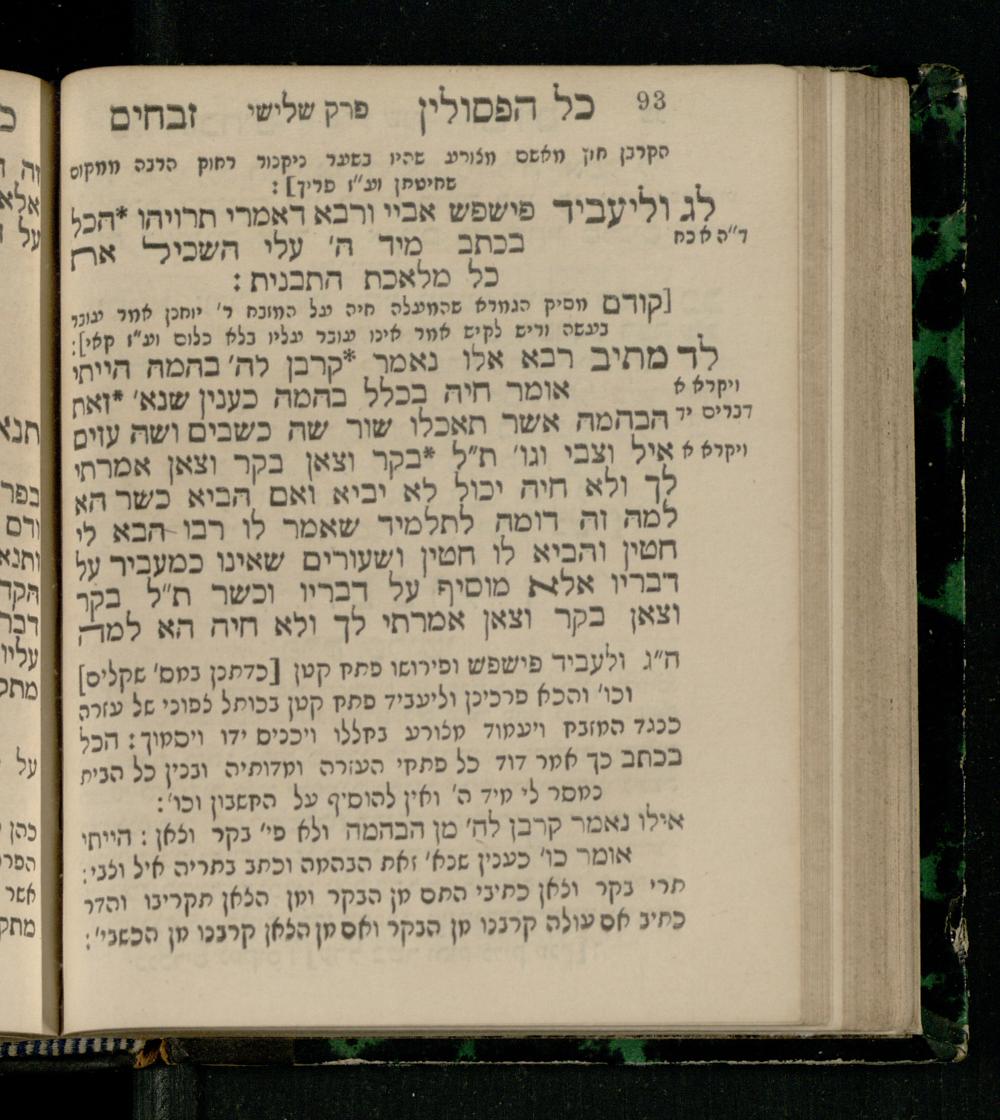 93 כל הפסולין פרק שלישי זבחים
הקרבן חוץ מאשם מצורע שהיו בשער ניקנור רחוק הרבה ממקום
שחיטתן וע"ז פריך] :
לג וליעביד פישפש אביי ורבא דאמרי תרויהו *הכל
ד"ה א כח
בכתב מיד ה' עלי השכיל את
כל מלאכת התבנית :
[קודם מסיק הגמרא שהמעלה חיה על המזבח ר' יוחנן אמר עובר
בעשה וריש לקיש אמר אינו עובר עליו בלא כלום וע"ז קאי]:
לד מתיב רבא אלו נאמר *קרבן לה' בהמה הייתי
ויקרא א
אומר חיה בכלל בהמה כענין שנא' *זאת
דברים יד
הבהמה אשר תאכלו שור שה כשבים ושה עזים
ויקרא א
איל וצבי וגו' ת"ל *בקר וצאן בקר וצאן אמרתי
לך ולא חיה יכול לא יביא ואם הביא כשר הא
למה זה דומה לתלמיד שאמר לו רבו הבא לי
חטין והביא לו חטין ושעורים שאינו כמעביר על
דבריו אלא מוסיף על דבריו וכשר ת"ל בקר
וצאן בקר וצאן אמרתי לך ולא חיה הא למה
ה"ג ולעביד פישפש ופירושו פתח קטן [כדתנן במס' שקלים]
וכו' והכא פרכינן וליעביד פתח קטן בכותל צפוני של עזרה
כנגד המזבח ויעמוד מצורע בחללו ויכניס ידו ויסמוך : הכל
בכתב כך אמר דוד כל פתחי העזרה ומדותיה ובנין כל הבית
נמסר לי מיד ה' ואין להוסיף על החשבון וכו':
אילו נאמר קרבן לה' מן הבהמה ולא פי' בקר וצאן : הייתי
אומר כו' כענין שנא' זאת הבהמה וכתב בתריה איל וצבי:
תרי בקר וצאן כתיבי התם מן הבקר ומן הצאן תקריבו והדר
כתיב אם עולה קרבנו מן הבקר ואם מן הצאן קרבנו מן הכשבי':